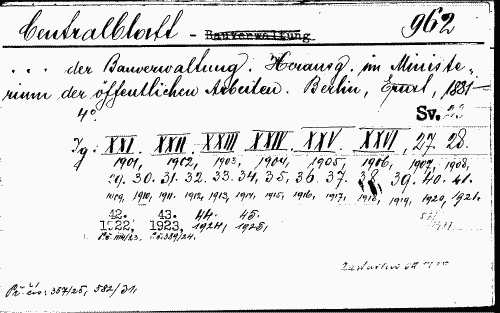 Centralblatt - Bauverwaltung 962
... der Bauverwaltung. Herausg. im Ministe-
rium der öffentlichen Arbeiten. Berlin, Ernst, 1881-
4°. Sv. 23
Jg: XXI. XXII. XXIII XXIV. XXV. XXVI, 27. 28.
1901, 1902, 1903, 1904, 1905, 1906, 1907, 1908,
29. 30. 31. 32. 33. 34, 35, 36. 37. 38. 39. 40. 41.
1909, 1910, 1911, 1912, 1913, 1914, 1915, 1916, 1917, 1918, 1919, 1920, 1921.
42. 43. 44. 45.
1922, 1923, 1924, 1925,
Př. čís: 357/25, 582/31,